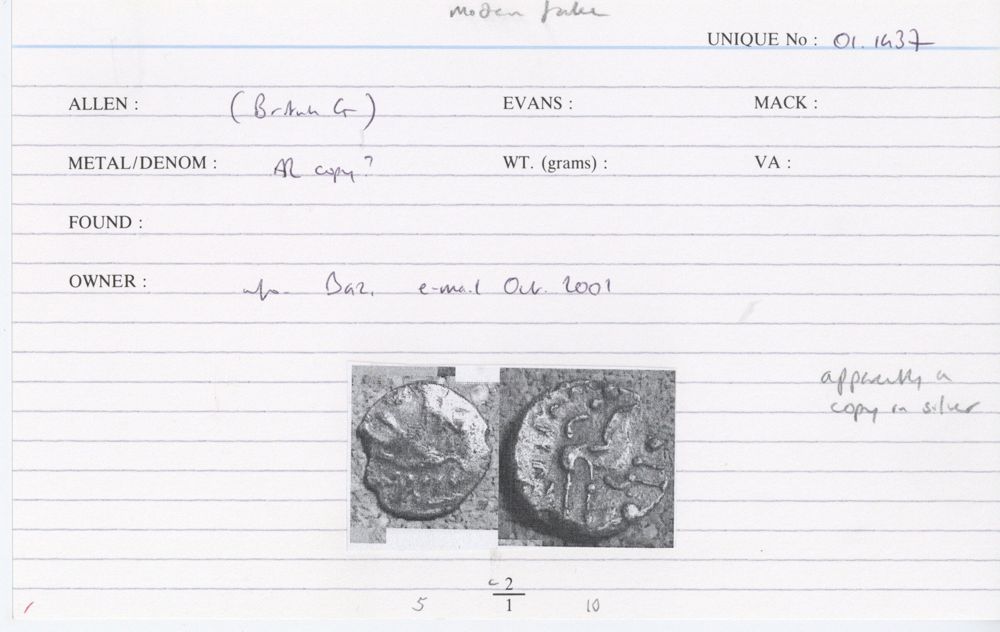 modern fake
UNIQUE No : 01.1937
ALLEN : (British G) EVANS : MACK :
METAL/DENOM : AR copy? WT. (grams) : VA :
FOUND :
OWNER : info. Baz, e-mail Oct. 2001
apparently a
copy in silver
c 2
5 1 10